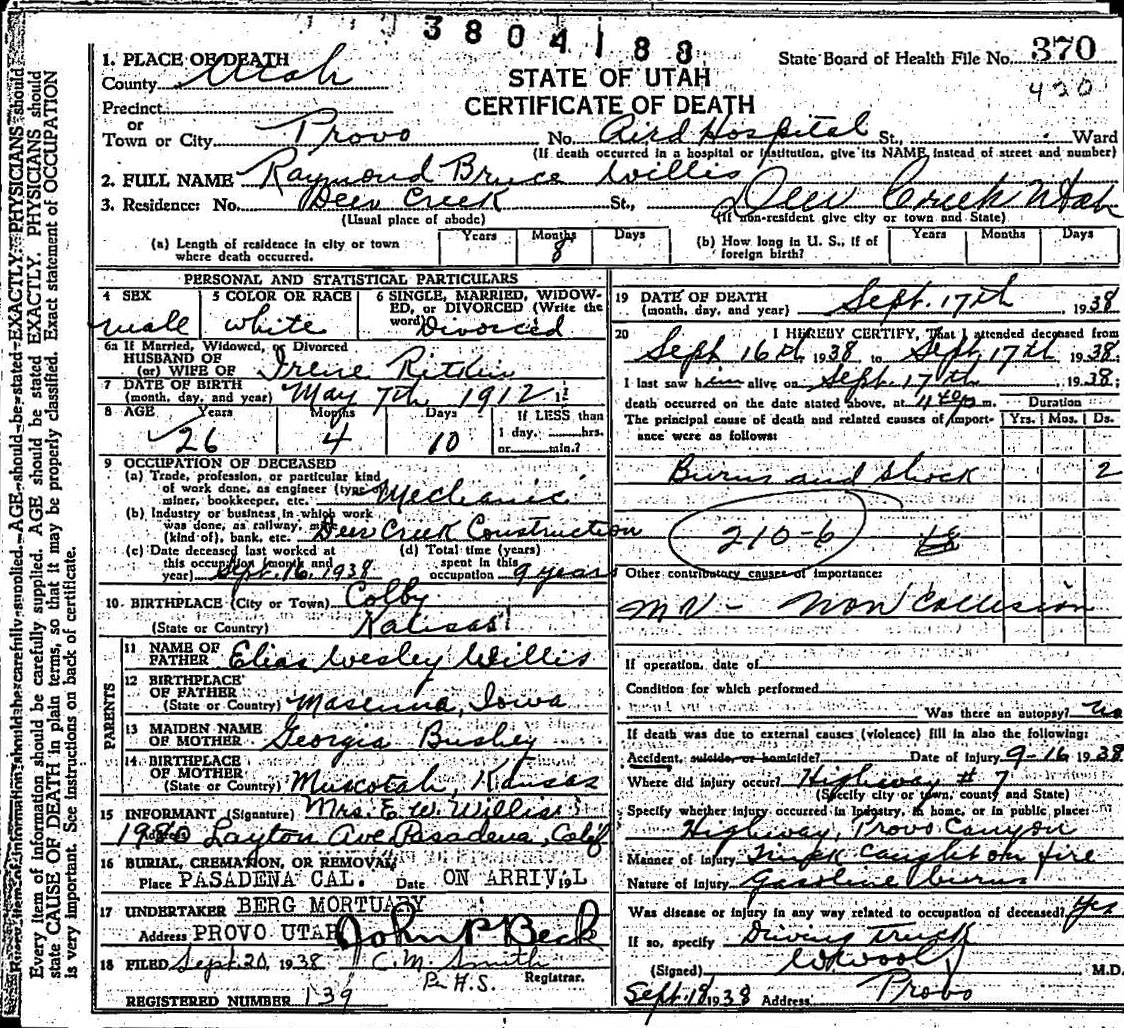 3804188
State Board of Health File No. 370
420
STATE OF UTAH
CERTIFICATE OF DEATH
1. PLACE OF DEATH
County Utah
Precinct
or
Town or City Provo No. Aird Hospital St., Ward
(If death occurred in a hospital or institution, give its NAME instead of street and number)
2. FULL NAME Raymond Bruce Willis
3. Residence: No. Deer Creek St., Deer Creek Utah
(Usual place of abode) (If non-resident give city or town and State)
(a) Length of residence in city or town where death occurred. Years Months 8 Days
(b) How long in U. S., if of foreign birth? Years Months Days
PERSONAL AND STATISTICAL PARTICULARS
4 SEX male
5 COLOR OR RACE white
6 SINGLE, MARRIED, WIDOWED, or DIVORCED (Write the word) Divorced
6a If Married, Widowed, or Divorced
HUSBAND OF
(or) WIFE OF Irene
7 DATE OF BIRTH
(month, day, and year) May 7th 1912
8 AGE Years 26 Months 4 Days 10 If LESS than
1 day, hrs.
or min.?
9 OCCUPATION OF DECEASED
(a) Trade, profession, or particular kind
of work done, as engineer (type
miner, bookkeeper, etc. Mechanic
(b) Industry or business in which work
was done, as railway,
(kind of), bank, etc. Deer Creek Construction
(c) Date deceased last worked at
this occupation (month and
year) Sept. 16, 1938
(d) Total time (years)
spent in this
occupation 9 years
10 BIRTHPLACE (City or Town) Colby
(State or Country) Kansas
PARENTS
11 NAME OF
FATHER Elias Wesley Willis
12 BIRTHPLACE
OF FATHER
(State or Country) Masenna, Iowa
13 MAIDEN NAME
OF MOTHER Georgia Bushey
14 BIRTHPLACE
OF MOTHER
(State or Country) Muscotah, Kansas
15 INFORMANT (Signature) Mrs. E. W. Willis
Layton Ave, Pasadena, Calif
16 BURIAL, CREMATION, OR REMOVAL
Place PASADENA CAL. Date ON ARRIVAL 19
17 UNDERTAKER BERG MORTUARY
Address PROVO UTAH John P Beck
18 FILED Sept. 20, 1938 C. M. Smith
Registrar.
REGISTERED NUMBER 139
19 DATE OF DEATH
(month, day, and year) Sept. 17th 1938
20 I HEREBY CERTIFY, That I attended deceased from
Sept 16th 1938 to Sept 17th 1938;
I last saw him alive on Sept. 17th 1938;
death occurred on the date stated above, at m. Duration
The principal cause of death and related causes of importance were as follows: Yrs. Mos. Ds.
Burns and shock 2
210-6
Other contributory causes of importance:
MV- Non Collision
If operation, date of
Condition for which performed
Was there an autopsy? no
If death was due to external causes (violence) fill in also the following:
Accident, suicide, or homicide? Date of injury 9-16 1938
Where did injury occur? Highway # 7
(Specify city or town, county and State)
Specify whether injury occurred in industry, in home, or in public place:
Highway, Provo Canyon
Manner of injury Truck caught on fire
Nature of injury Gasoline burns
Was disease or injury in any way related to occupation of deceased? Yes
If so, specify Driving truck
(Signed) M.D.
Sept. 18 1938 Address Provo
Every item of information should be carefully supplied. AGE should be stated EXACTLY. PHYSICIANS should
state CAUSE OF DEATH in plain terms, so that it may be properly classified. Exact statement of OCCUPATION
is very important. See instructions on back of certificate.